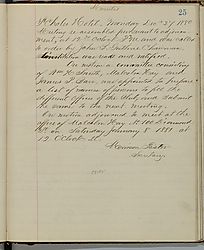 Minutes
25
St Charles Hotel, Monday Dec 27 1880
Meeting re-assembled pursuant to adjourn-
ment, at 2 O'clock P.M. and was called
to order by John S. Chairman
Constitution was read and ratified.
On motion a committee consisting
of Wm. Smith, Malcolm Hay, and
James S. were appointed to prepare
a list of names of persons to fill the
different offices of the Club, and submit
the same to the next meeting.
On motion adjourned to meet at the
office of Malcolm Hay No 100 Diamond
St on Saturday January 8 1881 at
12 O'Clock M.
Secretary.